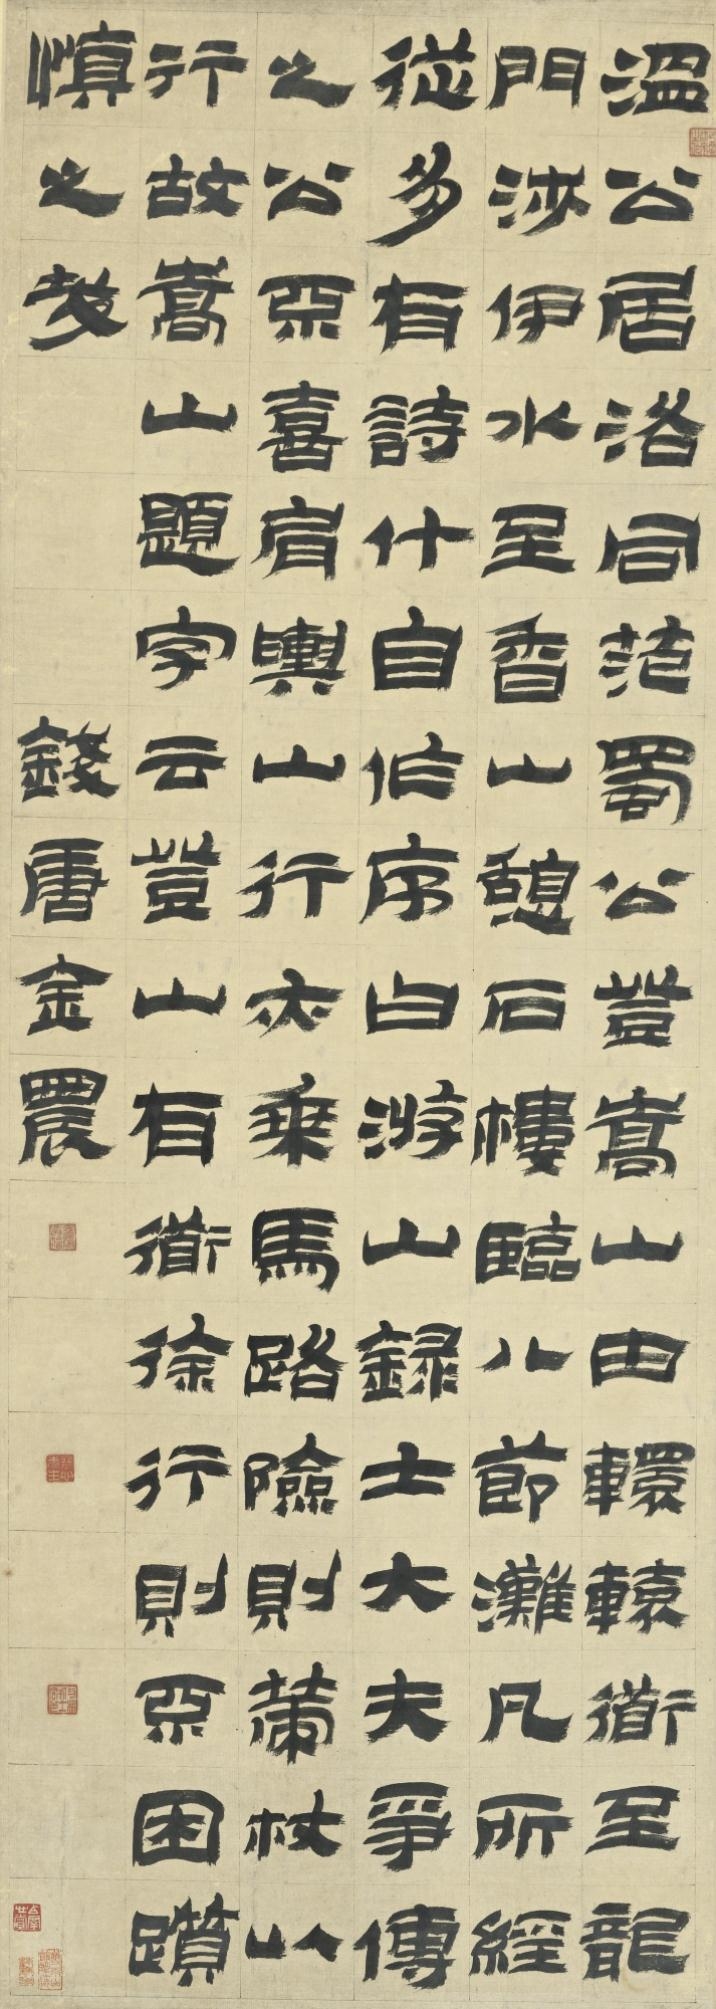 温公居洛同范蜀公豋嵩山由轘轅衟至龍
門涉伊水至香山憩石樓臨八節灘凡所經
從多有詩什自作序曰游山録士大夫爭傳
之公不喜肩輿山行亦乘馬路險則策杖以
行故嵩山題字云豋山有衟徐行則不困躓
慎之哉
錢唐金農